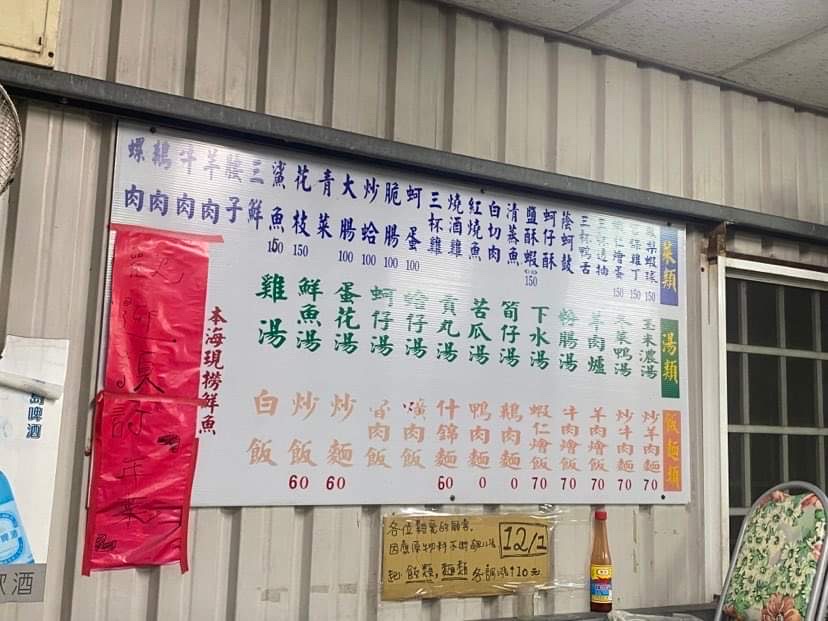 菜類
鳳梨蝦球 150
宮保雞丁 150
蝦仁燴蛋 150
三杯透抽
三杯鴨舌
蔭蚵鼓
蚵仔酥
鹽酥蝦 150
清蒸魚
白切肉
紅燒魚
燒酒雞
三杯雞
蚵蛋 100
脆腸 100
炒蛤 100
大腸 100
青菜
花枝 150
鯊魚 150
三鮮
腰子
羊肉
牛肉
鵝肉
螺肉
湯類
玉米濃湯
冬菜鴨湯
羊肉爐
粉腸湯
下水湯
筍仔湯
苦瓜湯
貢丸湯
蛤仔湯
蚵仔湯
蛋花湯
鮮魚湯
雞湯
飯麵類
炒羊肉麵 70
炒牛肉麵 70
羊肉燴飯 70
牛肉燴飯 70
蝦仁燴飯 70
鵝肉麵 0
鴨肉麵 0
什錦麵 60
肉飯
肉飯
炒麵 60
炒飯 60
白飯
本海現撈鮮魚
歡迎預訂年菜
各位親愛的顧客
因應原物料不斷
12/1
起 飯類,麵類 各調漲10元
啤酒
酒